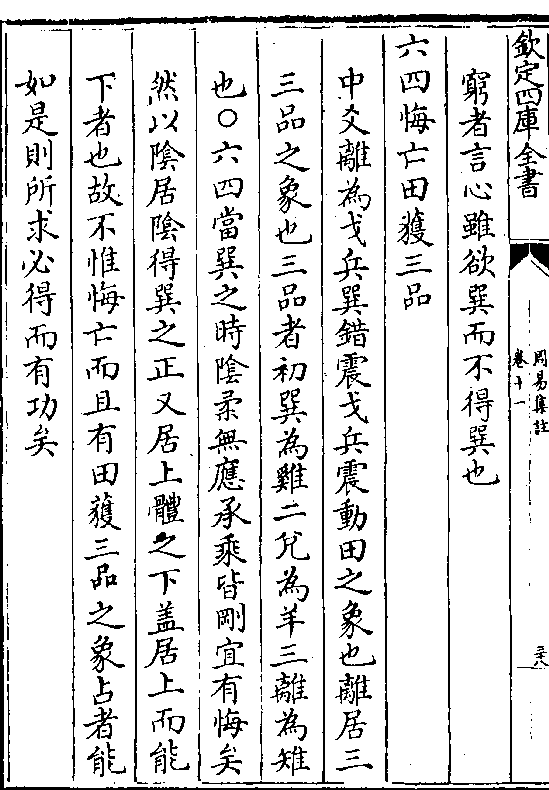 欽定四庫全書
周易集註
卷十一
三十八
窮者言心雖欲巽而不得巽也
六四悔亡田獲三品
中爻離為戈兵巽錯震戈兵震動田之象也離居三
三品之象也三品者初巽為雞二兌為羊三離為雉
也○六四當巽之時陰柔無應承乘皆剛宜有悔矣
然以陰居陰得巽之正又居上體之下盖居上而能
下者也故不惟悔亡而且有田獲三品之象占者能
如是則所求必得而有功矣